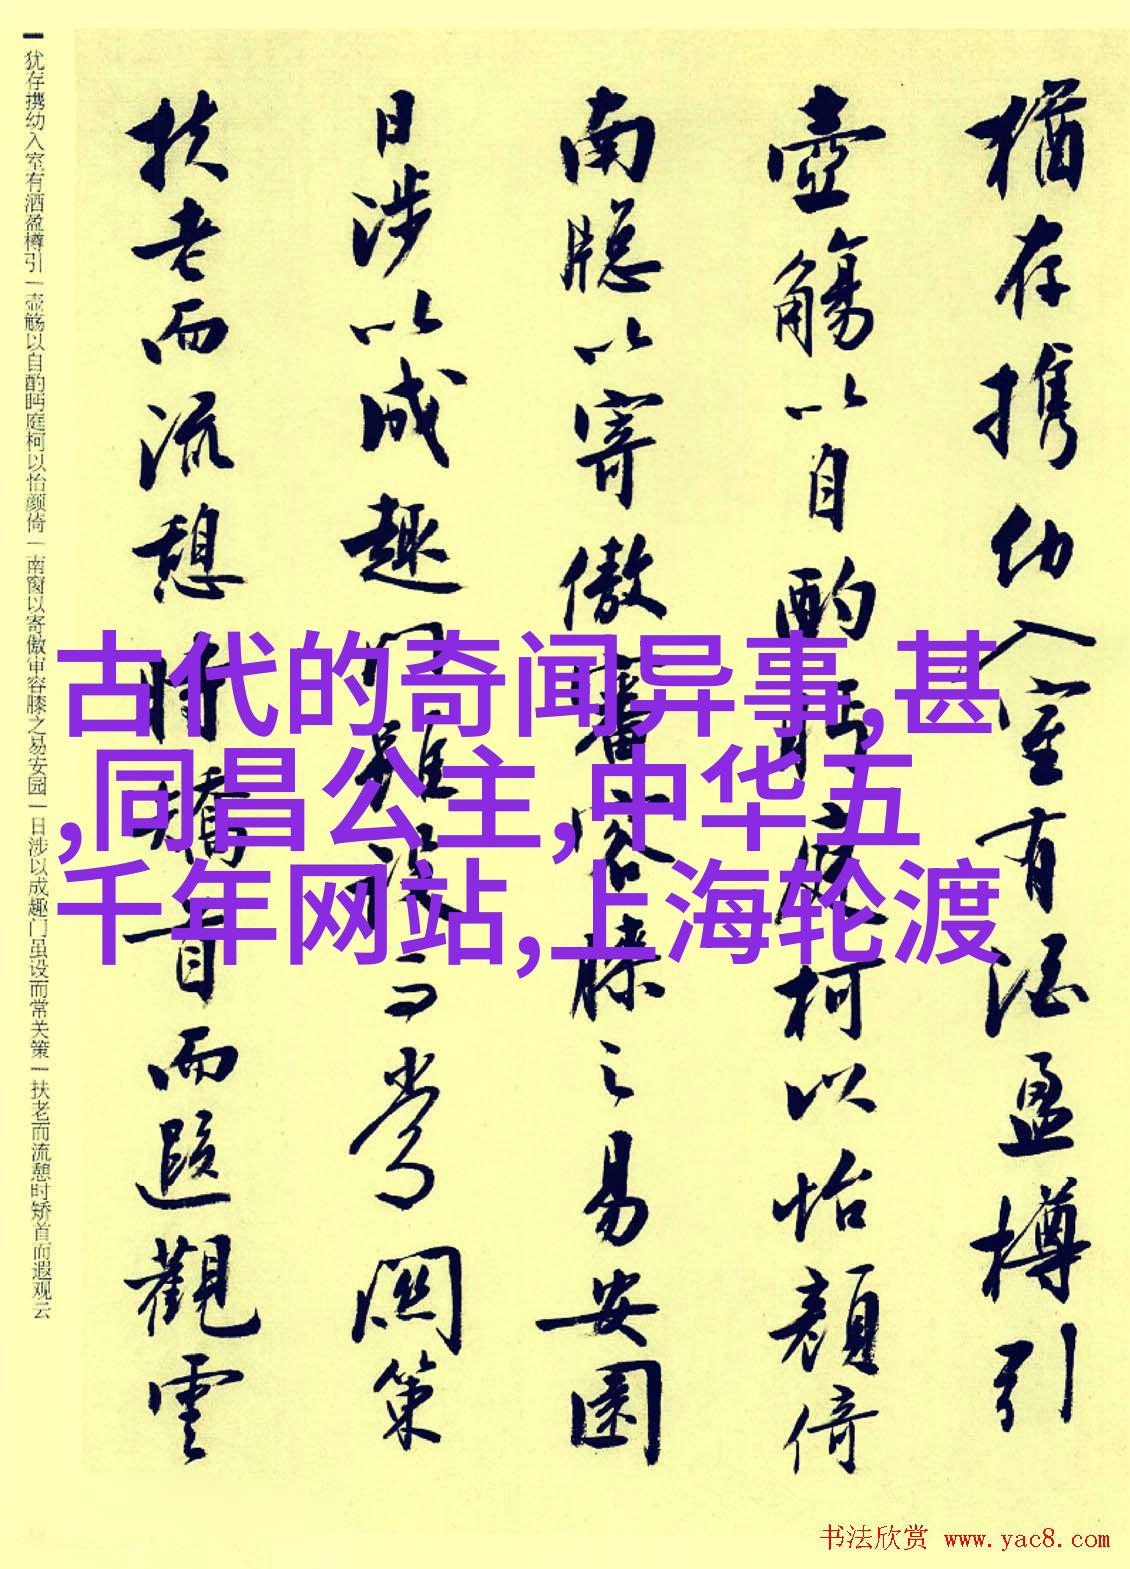 猶存携幼入室有酒盈樽引
壺觴以自酌眄庭柯以怡顔倚
南牕以寄傲審容膝之易安園
日涉以成趣門雖設而常關策
扶老而流憩時矯首而遐觀雲
犹存携幼入室有酒盈樽引|壶觞以自酌眄庭柯以怡颜倚|南窗以寄傲审容膝之易安园|日涉以成趣门虽设而常关策|扶老而流憩时矫首而遐观云
古代的奇闻异事,甚
,同昌公主,中华五
千年网站,上海轮渡
书法欣赏 www.yac8.com